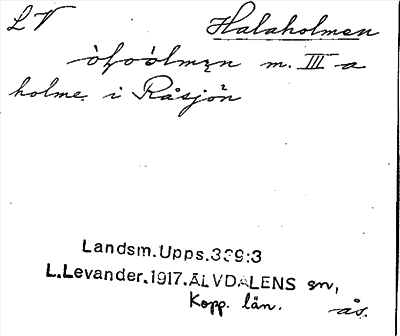 LV Halaholmen
m. III a
holme i Råsjön
Landsm.Upps.339:3
L.Levander.1917.ÄLVDALENS sn,
Kopp. län.
ås.